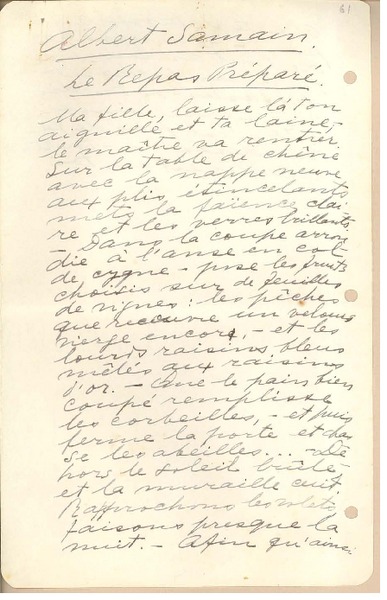 61
Albert Samain.
Le Repas Préparé.
Ma fille, laisse là ton
aiguille et ta laine,
le maître va rentrer
Sur la table de chêne
avec la nappe neuve
aux plis étincelants
mets la faïence clai
re et les verres brillants
- Dans la coupe arron
die à l'anse en col
de cygne - pose les fruits
choisis sur de feuilles
de vignes: les pêches
que recouvre un velours
vierge encore, - et les
lourds raisins bleus
mêlés aux raisins
d'or. - Que le pain bien
coupé remplisse
les corbeilles, - et puis
ferme la porte et chas
se les abeilles... - De
hors le soleil brûle
et la muraille cuit
Rapprochons les volets
faisons presque la
nuit. - Afin qu'ainsi